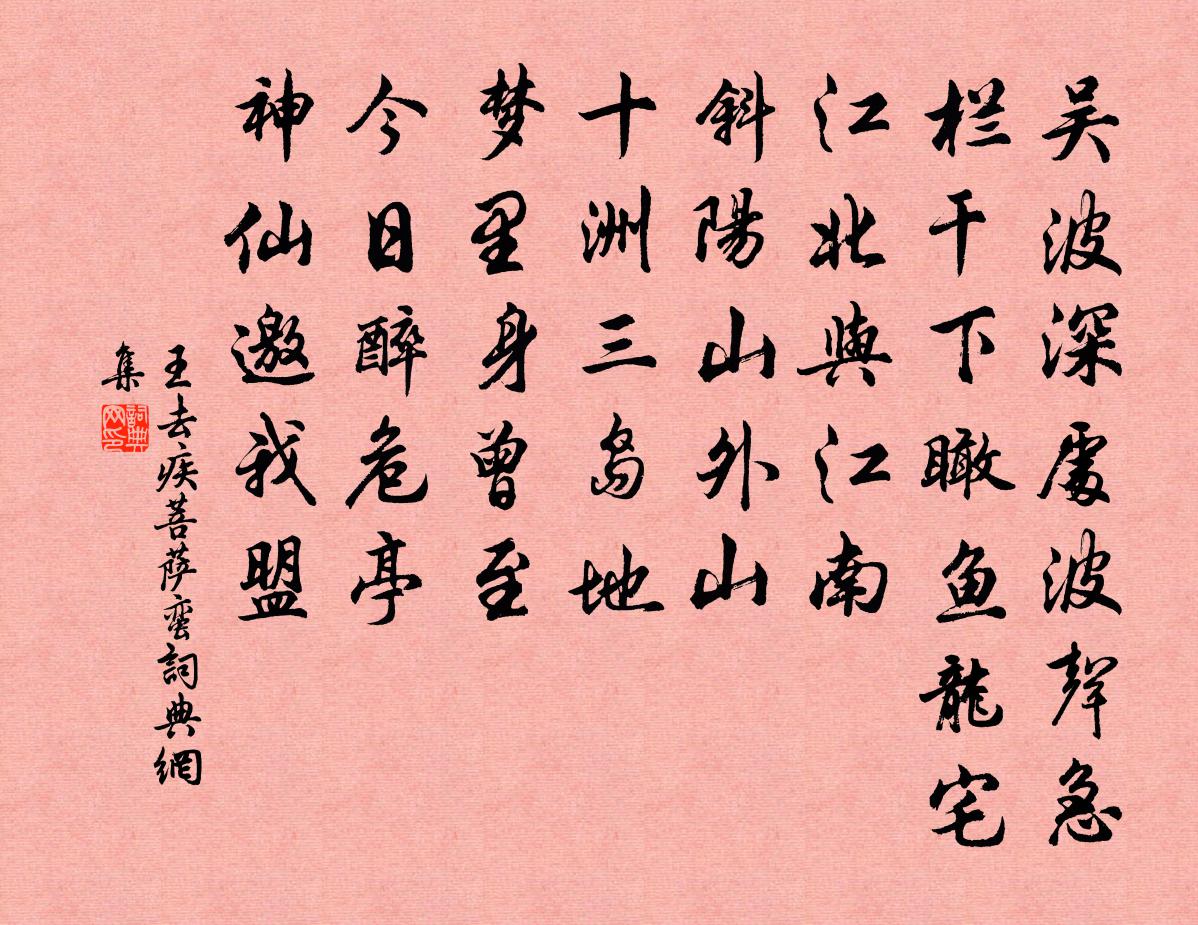 吴波深處波声急
栏干下瞰鱼龍宅
江北與江南
斜陽山外山
十洲三岛地
梦里身曾至
今日醉危亭
神仙邀我盟
王去疾菩萨蛮詞典網
集
詞典网印